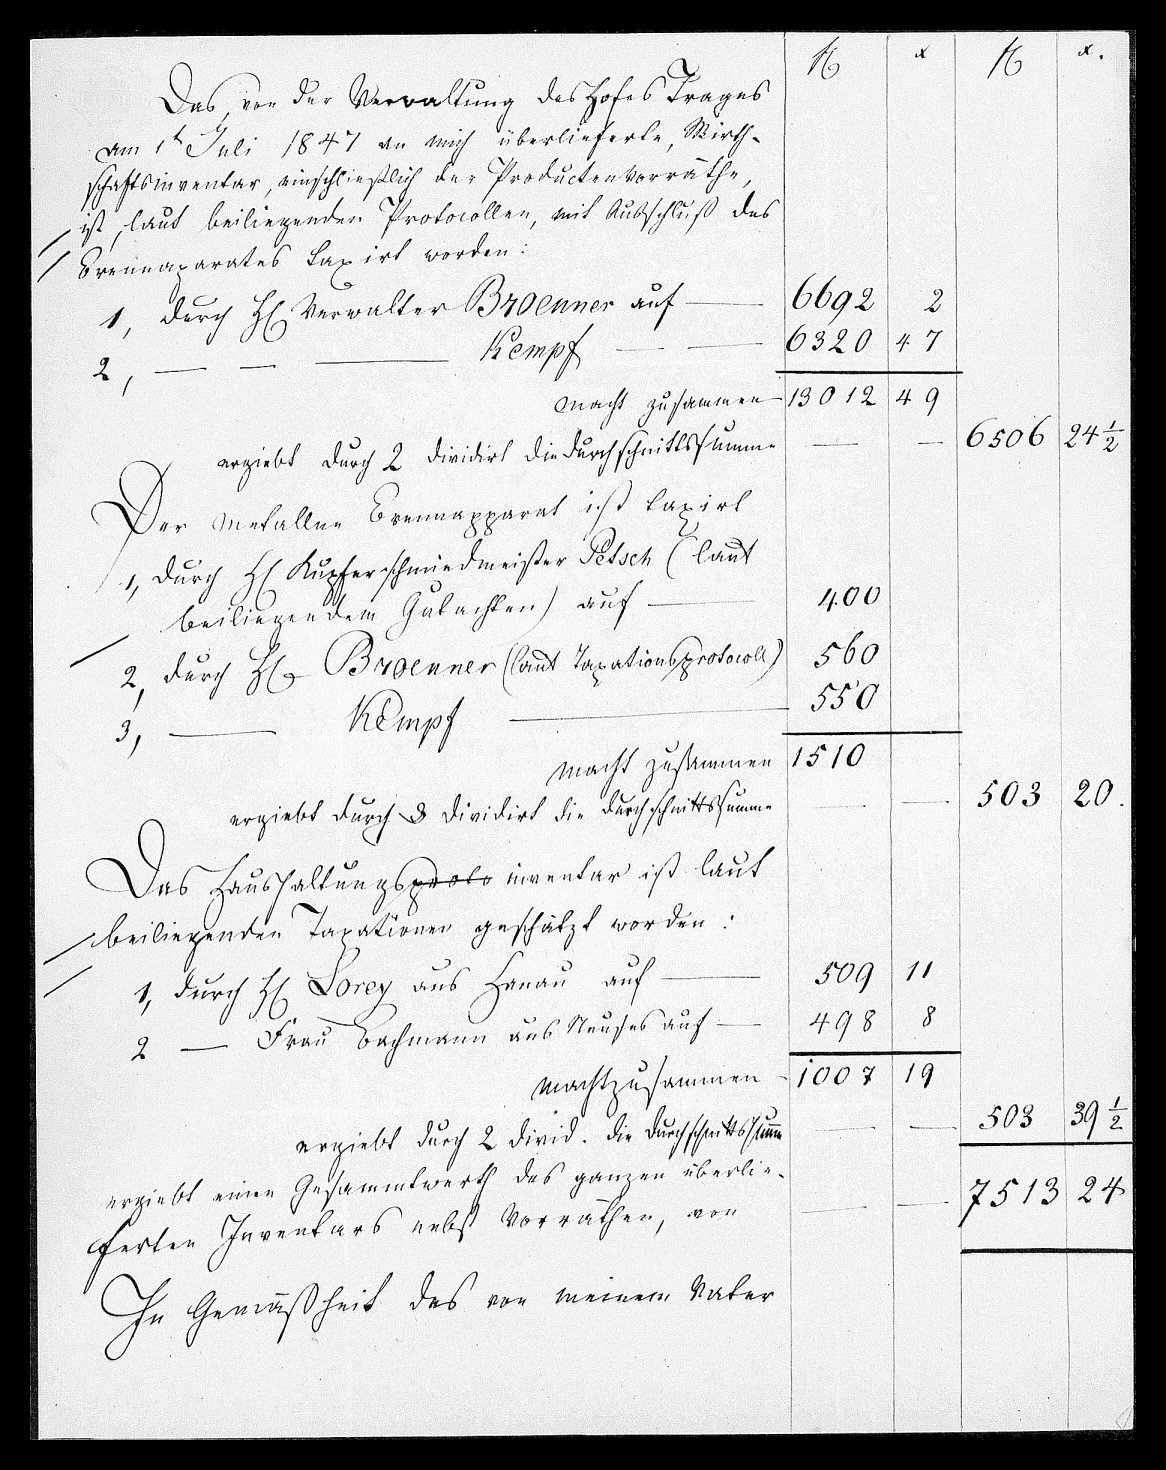 fl x fl x.
Das, von der Verwaltung des Hofes Trages
am 1t Juli 1847 an mich überlieferte, Wirth-
schaftsinventar, einschließlich der Productenvorräthe,
ist, laut beiliegenden Protocollen, mit Ausschluß des
Brennaparates taxirt worden:
1, durch H Verwalter Broenner auf — 6692 2
2, — — — Kempf — — 6320 47
macht zusammen — 13012 49
ergiebt durch 2 dividirt die Durchschnittssumme — — 6506 24 1/2
Der metallne Brennapparat ist taxirt
1, durch H Kupferschmiedmeister Petsch (laut
beiliegendem Gutachten) auf — 400
2, durch H Broenner (laut Taxationsprotocoll) 560
3, — Kempf — 550
macht zusammen 1510
ergiebt durch 3 dividirt die Durchschnittssumme — — 503 20.
Das Haushaltungsproto inventar ist laut
beiliegenden Taxationen geschätzt worden:
1, durch H Lorey aus Hanau auf — 509 11
2 — Frau Bachmann aus Neuses auf — 498 8
macht zusammen — 1007 19
ergiebt durch 2 divid. die Durchschnittssumme — — 503 39 1/2
ergiebt einen Gesammtwerth des ganzen überlie-
ferten Inventars nebst Vorräthen, von — — 7513 24
In Gemäßheit des von meinem Vater